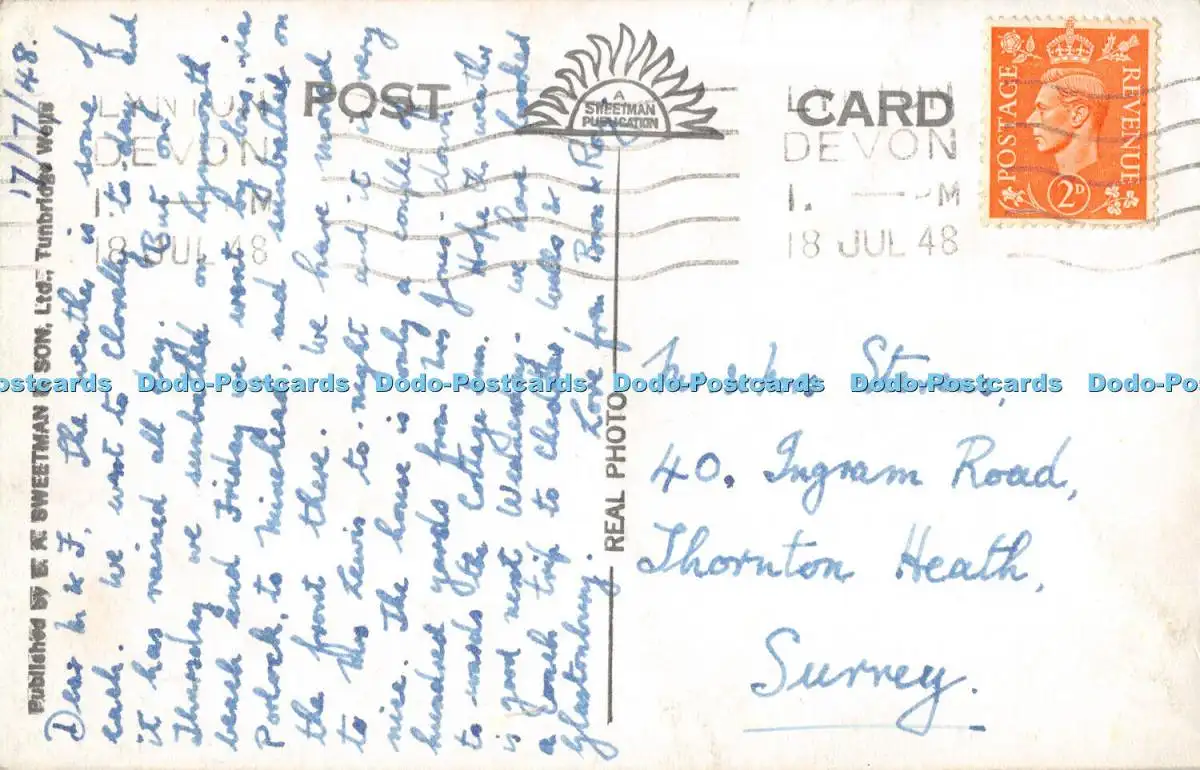 17/7/48.
Dear M & F, The weather is none of
each. We went to Clovelly to-day and
it has rained all day. But on
Thursday we sunbathed on Lynmouth
beach and Friday we went by bus, via
Porlock, to Minehead, and sunbathed on
the front there. We have moved
to Mrs Lewis to-night and it is very
nice. The house is only a couple of
hundred yards from Mrs Jones, down
towards the Cottage Inn. Hope the weather
is good next Wednesday. We have booked
a coach trip to Cheddar, Wells &
Glastonbury. Love from Bron & Roy
Published by E. A. SWEETMAN & SON, Ltd., Tunbridge Wells
POST CARD
A
SWEETMAN
PUBLICATION
REAL PHOTO
LYNTON
DEVON
M
18 JUL 48
LYNTON
DEVON
1. PM
18 JUL 48
POSTAGE
REVENUE
2D
40. Ingram Road,
Thornton Heath,
Surrey.
Dodo-Postcards Dodo-Postcards Dodo-Postcards Dodo-Postcards Dodo-Postcards Dodo-Postcards